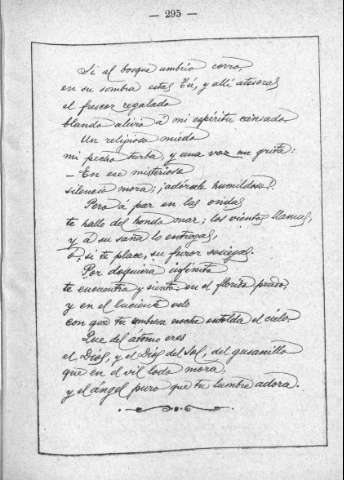 — 295 —
Si al bosque umbrío corro,
en su sombra estas Tú, y allí atesoras
el frescor regalado
blando alivio á mi espíritu cansado.
Un religioso miedo
mi pecho turba, y una voz me grita:
—En ese misterioso
silencio mora; ¡adórale humildoso!
Pero á par en las ondas
te hallo del hondo mar; los vientos llamas,
y á su saña lo entregas,
ó, si te place, su furor sosiegas.
Por doquiera infinito
te encuentro y siento; en el florido prado,
y en el luciente velo
con que tu umbrosa noche entolda el cielo.
Que del átomo eres
el Dios, y el Dios del Sol, del gusanillo
que en el vil lodo mora,
y el ángel puro que tu lumbre adora.